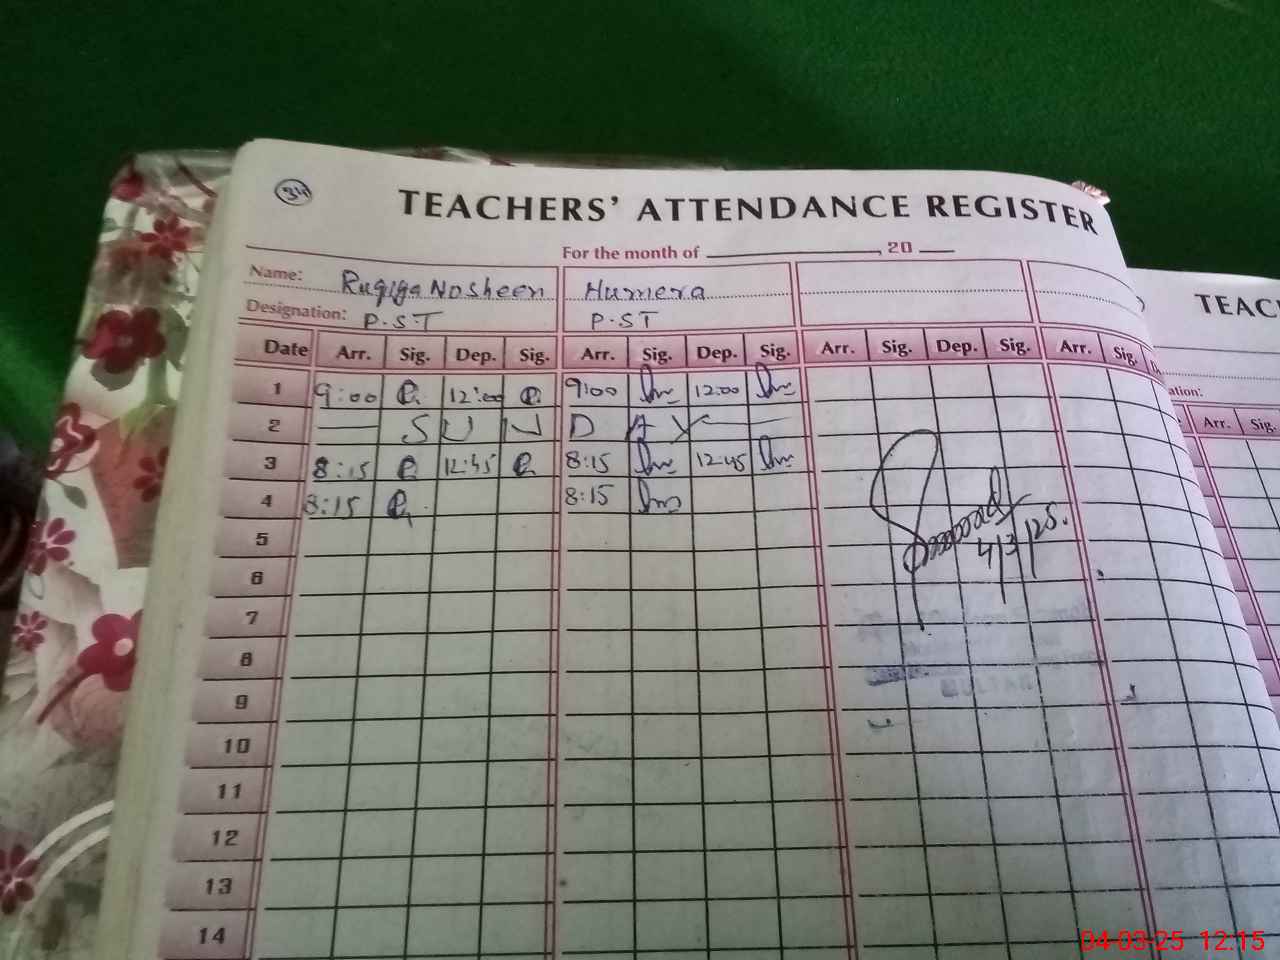 34
TEACHERS' ATTENDANCE REGISTER
For the month of , 20
Name: Ruqiya Nosheen Humera
Designation: P.S.T P.ST
Date Arr. Sig. Dep. Sig. Arr. Sig. Dep. Sig. Arr. Sig. Dep. Sig. Arr. Sig.
1 9:00 12:00 9:00 12:00
2 SUNDAY
3 8:15 12:45 8:15 12:45
4 8:15 8:15
5
6
7
8
9
10
11
12
13
14
4/3/25.
TEAC
ation:
Arr. Sig.
04-03-25 12:15